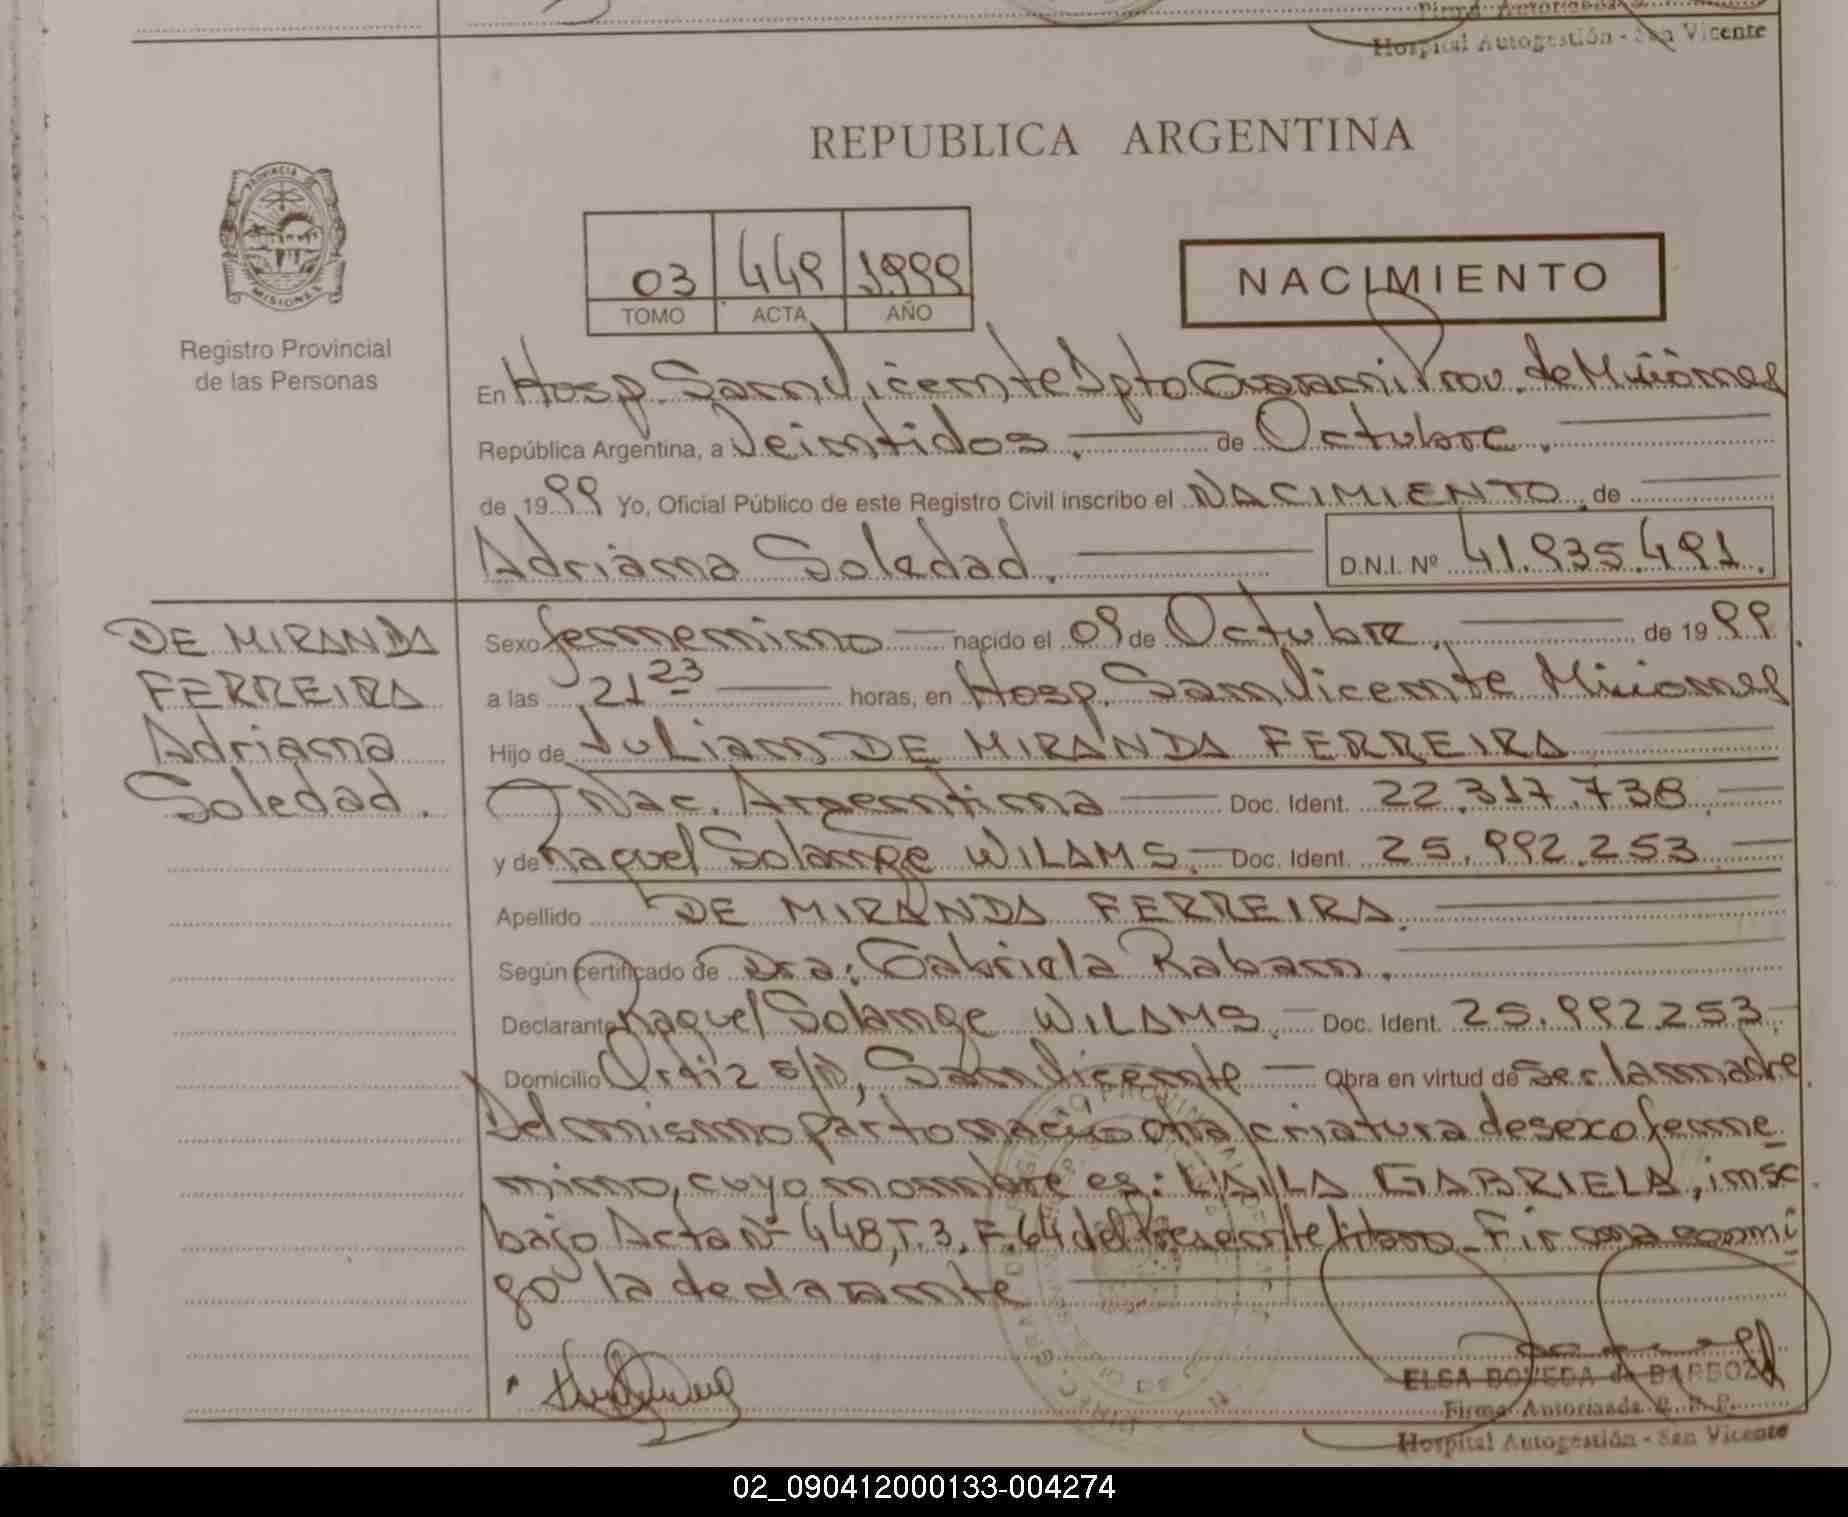 Firma Autorizada
Hospital Autogestión - San Vicente
REPUBLICA ARGENTINA
PROVINCIA DE
MISIONES
Registro Provincial
de las Personas
03 449 1999
TOMO ACTA AÑO
NACIMIENTO
En Hosp. San Vicente Dpto Guarani Prov. de Misiones
República Argentina, a Veintidos. de Octubre.
de 1999 Yo, Oficial Público de este Registro Civil inscribo el NACIMIENTO de
Adriana Soledad. D.N.I. Nº 41.935.491.
DE MIRANDA
FERREIRA
Adriana
Soledad.
Sexo femenino nacido el 09 de Octubre. de 1999.
a las 21 23 horas, en Hosp. San Vicente Misiones
Hijo de Julian DE MIRANDA FERREIRA
Nac. Argentina Doc. Ident. 22.317.738
y de Raquel Solange WILAMS. Doc. Ident. 25.992.253
Apellido DE MIRANDA FERREIRA.
Según certificado de Dra: Gabriela Raban.
Declarante Raquel Solange WILAMS. Doc. Ident. 25.992.253.
Domicilio Ortiz s/n, San Vicente Obra en virtud de ser la madre.
Del mismo parto nacio otra criatura de sexo feme
nino, cuyo nombre es: LAILA GABRIELA, insc.
bajo Acta Nº 448, T.3, F.64 del Presente libro - Firma conmi
go la declarante
ELSA BOVEDA de BARBOZA
Firma Autorizada R. P. P.
Hospital Autogestión - San Vicente
02_090412000133-004274